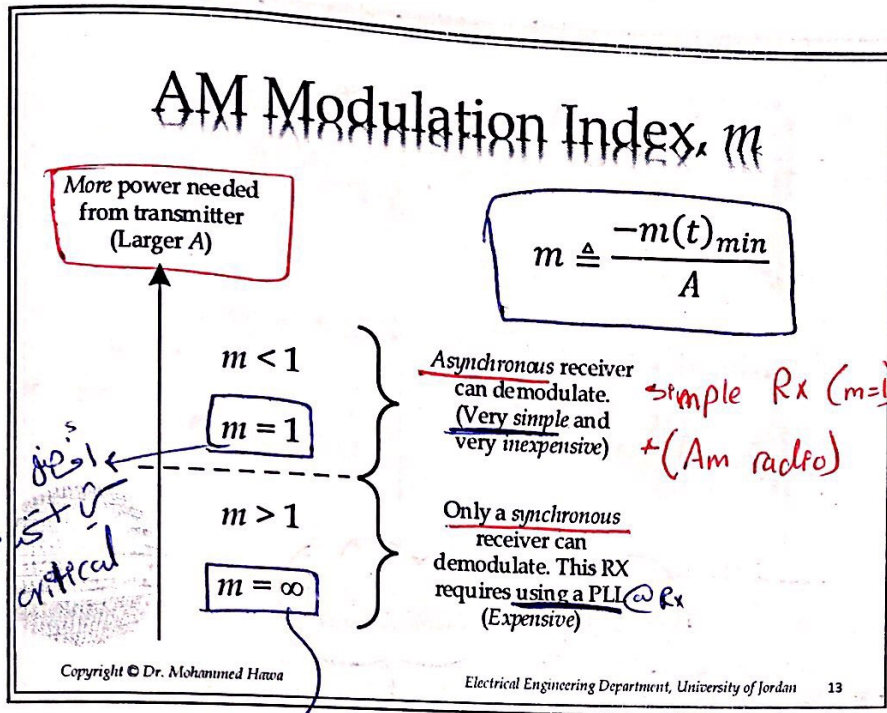 AM Modulation Index, m
More power needed
from transmitter
(Larger A)
m ≜ −m(t)min / A
m < 1
m = 1
m > 1
m = ∞
Asynchronous receiver
can demodulate.
(Very simple and
very inexpensive)
simple Rx (m=1
+(Am radio)
critical
Only a synchronous
receiver can
demodulate. This RX
requires using a PLL @ Rx
(Expensive)
Copyright © Dr. Mohammed Hawa
Electrical Engineering Department, University of Jordan 13